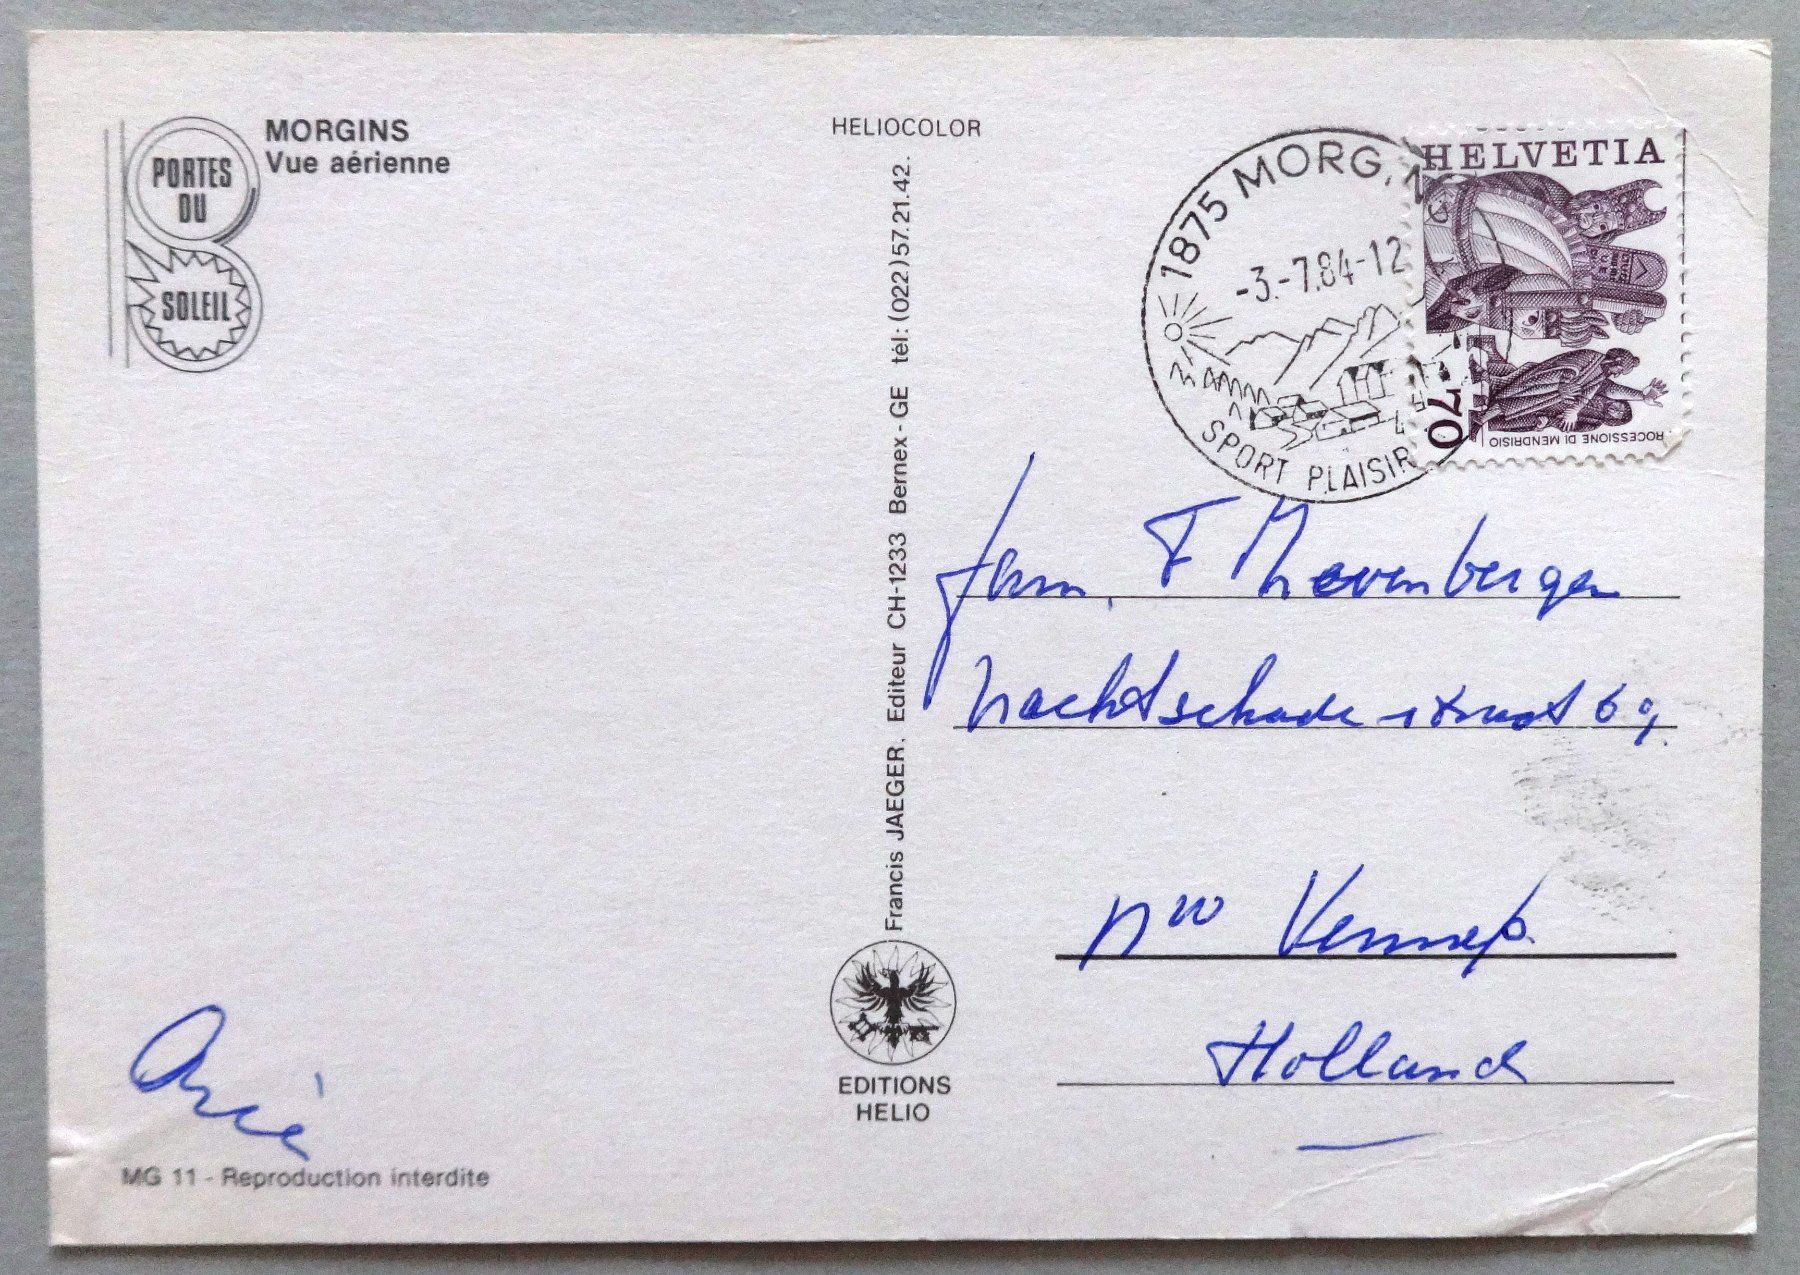 MORGINS
Vue aérienne
PORTES
DU
SOLEIL
HELIOCOLOR
Francis JAEGER. Editeur CH-1233 Bernex - GE tèl: (022) 57.21.42.
1875 MORG
-3.-7.84-12
SPORT PLAISIR
HELVETIA
70
ROCESSIONE DI MENDRISIO
Fam. F
Nachtschadestraat 69
Nw Vennep.
Holland
EDITIONS
HELIO
Arie
MG 11 - Reproduction interdite